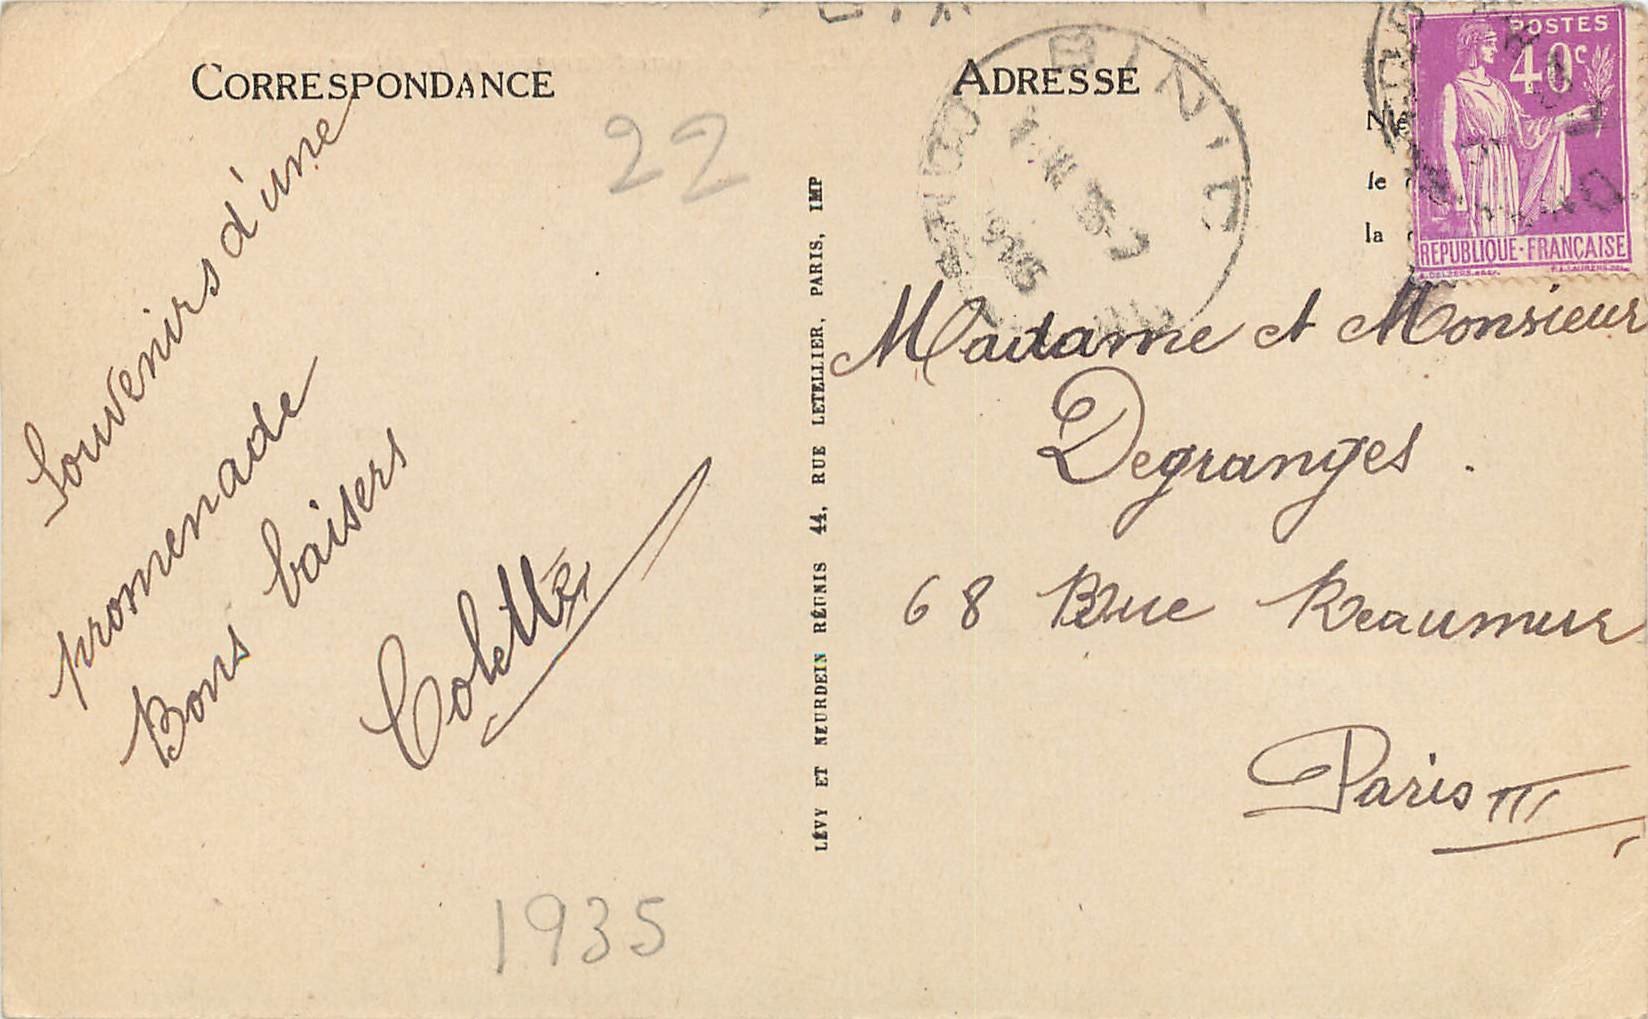 CORRESPONDANCE
22
Souvenirs d'une
promenade
Bons baisers
Colette
1935
LÉVY ET NEURDEIN RÉUNIS 44, RUE LETELLIER, PARIS, IMP
ADRESSE
BINIC
POSTES
40c
REPUBLIQUE-FRANÇAISE
le
la
Madame et Monsieur
Degranges.
68 Rue Reaumur
Paris III